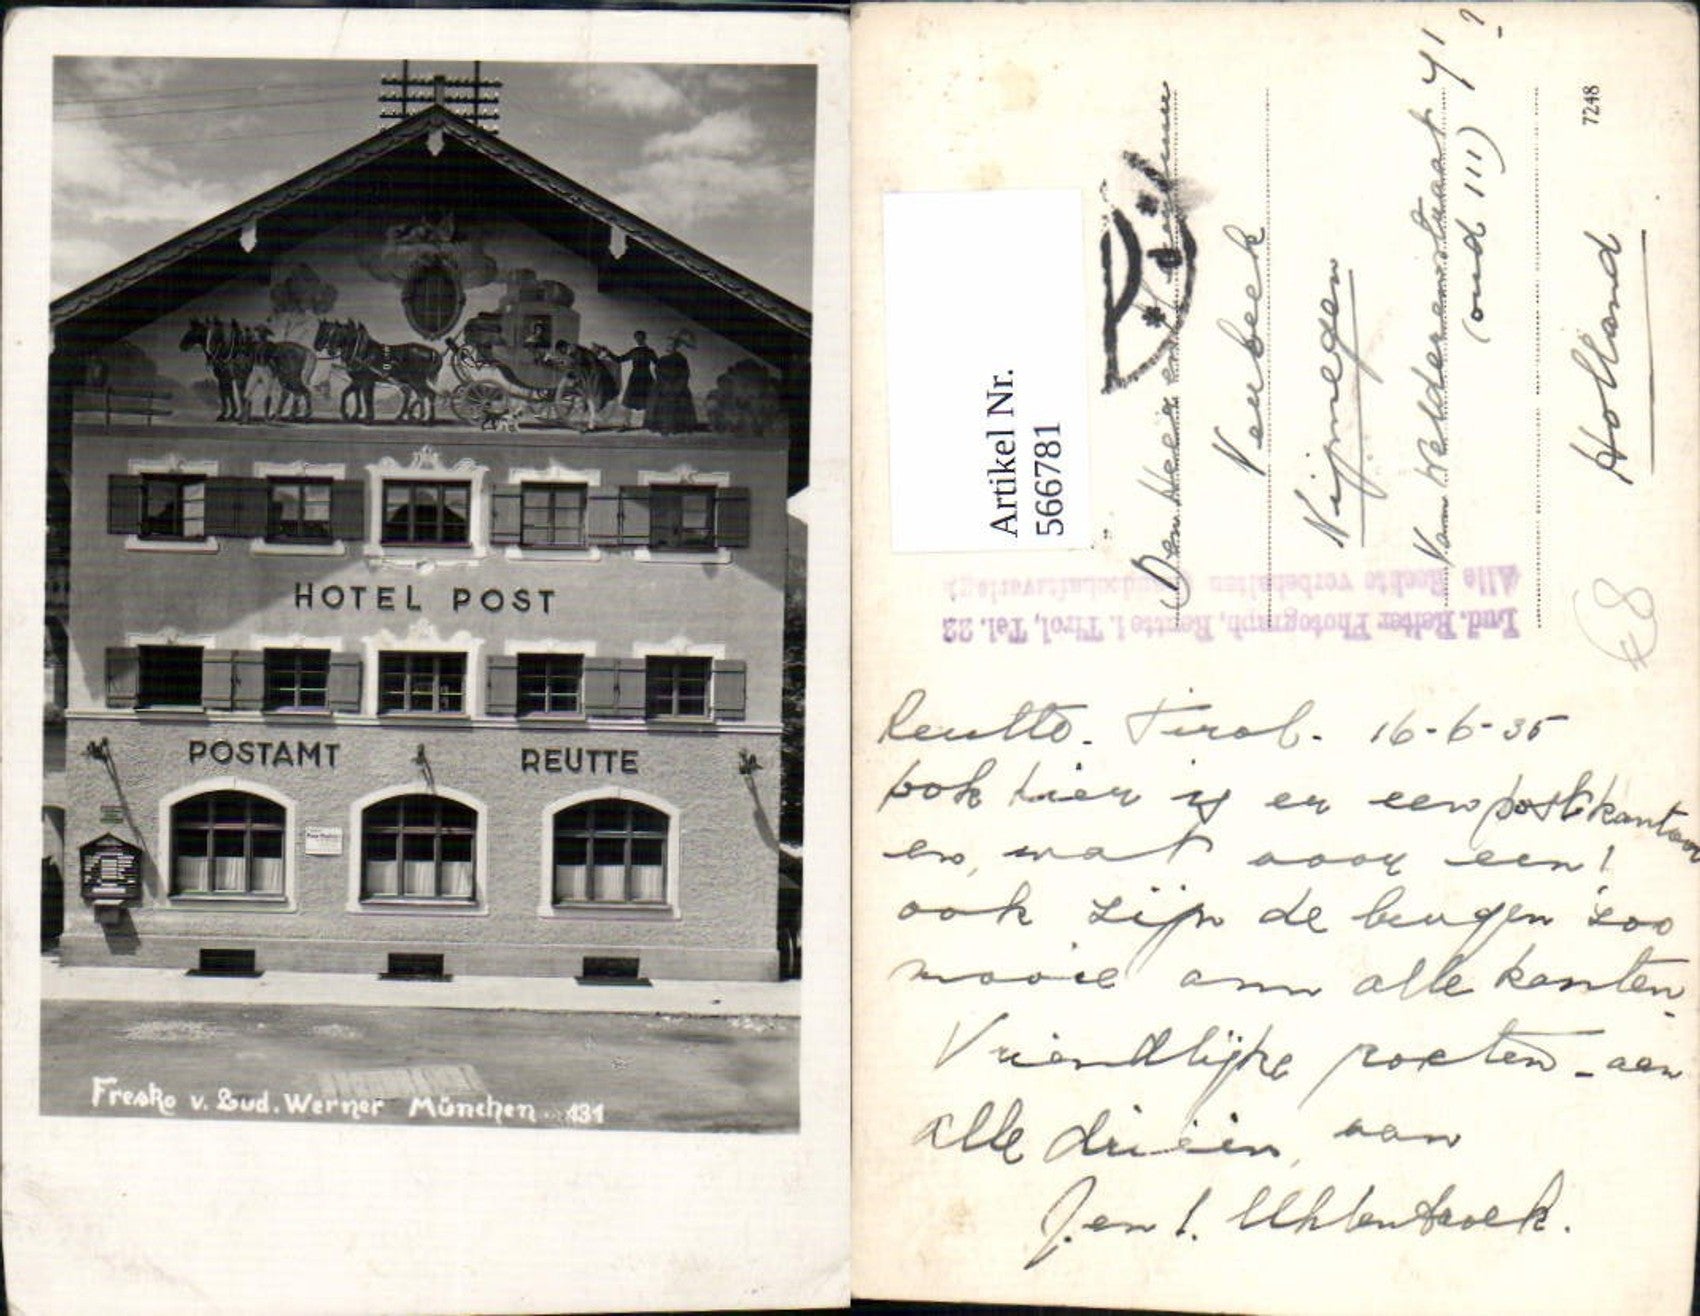 HOTEL POST
POSTAMT REUTTE
Fresko v. Lud. Werner München 131
Artikel Nr.
5667781
Den Heer en
Verbeek
Nijmegen
Van Welderenstraat 41
(oud 111) ?
Holland
7248
Lud. Reiter Photograph, Reutte i. Tirol, Tel. 22
Alle Rechte vorbehalten
8
Reutte. Tirol. 16-6-35
ook hier is er een postkantoor
en, wat voor een!
ook zijn de bergen zoo
mooie aan alle kanten.
Vriendlijke groeten - aan
alle drieën, van
J. en J. Uhlenbroek.